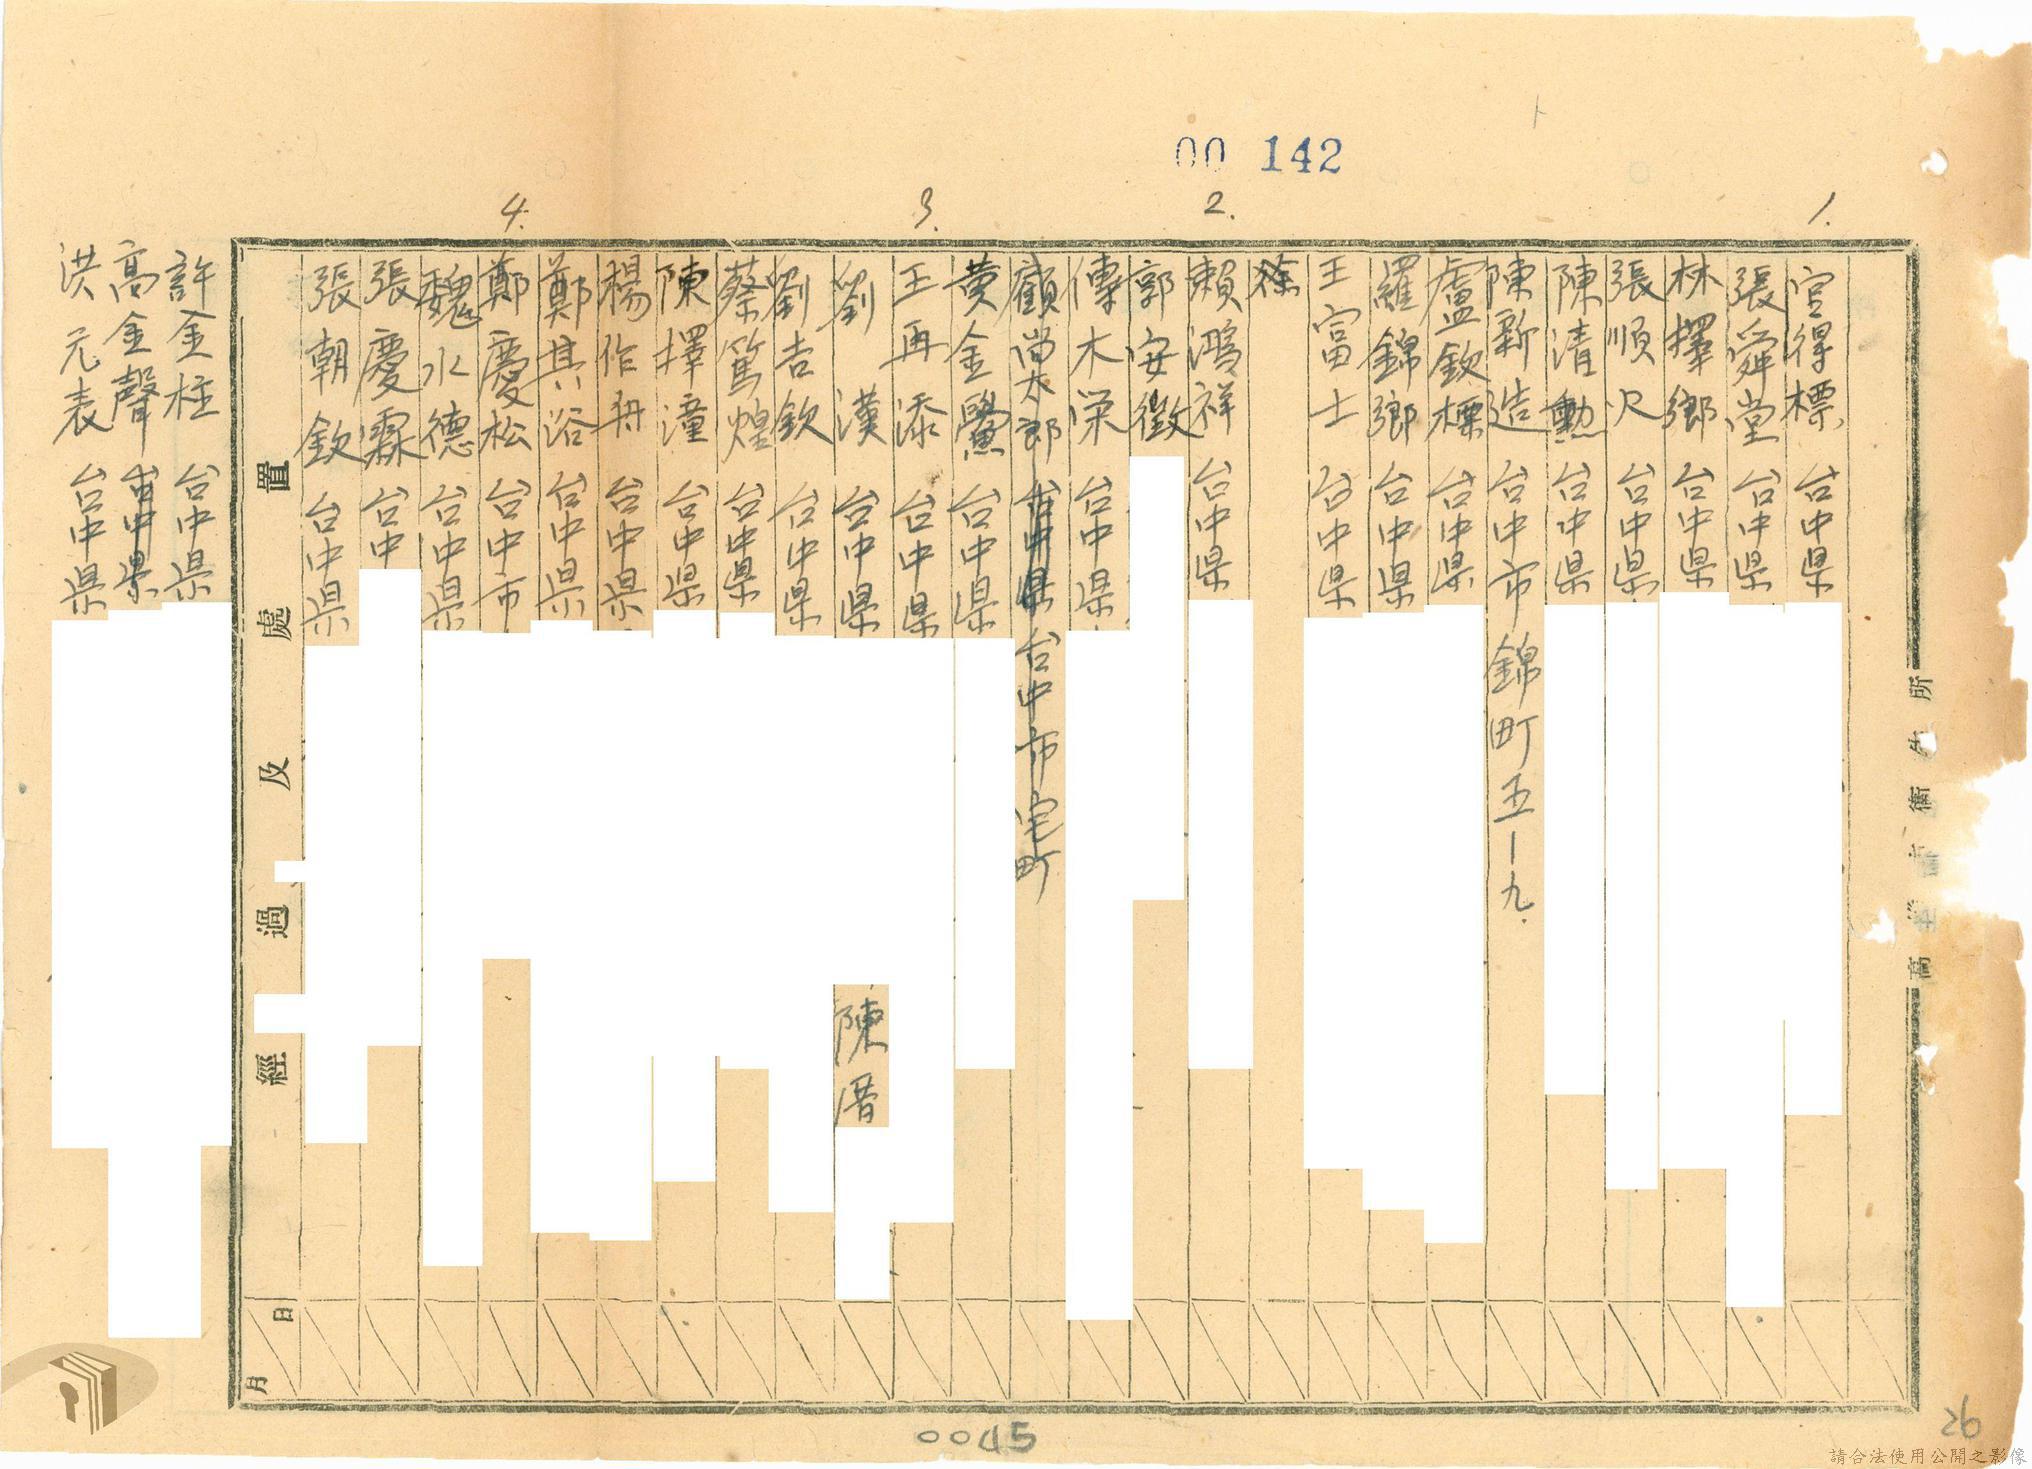 00 142
1.
2.
3.
4.
宮得標 台中県
張舜堂 台中県
林擇鄉 台中県
張順尺 台中県
陳清勲 台中県
陳新造 台中市錦町五-九.
盧欽標 台中県
羅錦鄉 台中県
王富士 台中県
徐
賴鴻祥 台中県
郭安徵
傅木栄 台中県
顧尚太郎 台中県 台中市宅町
黄金鸞 台中県
王再添 台中県
劉漢 台中県 陳厝
劉吉欽 台中県
蔡篤煌 台中県
陳擇潼 台中県
楊作舟 台中県
鄭其浴 台中県
鄭慶松 台中市
魏水德 台中県
張慶霖 台中
張朝欽 台中県
置處及過經
日
月
許金柱 台中県
高金聲 台中県
洪元表 台中県
0045
26
請合法使用公開之影像